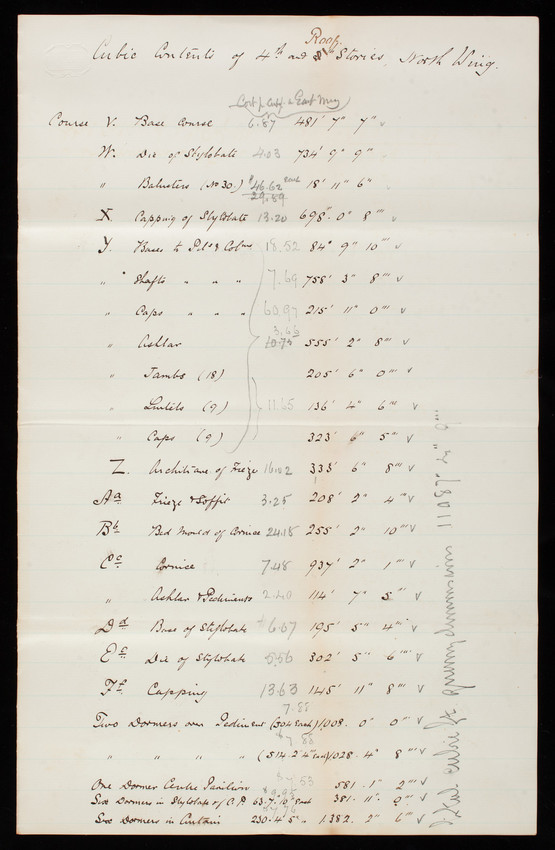 Roof.
Cubic Contents of 4th and Stories, North Wing.
Cost p. Cub. ft. East Wing
Course V. Base Course 6.87 481' 7" 7'" v
W. Die of Stylobate 4.03 734' 9" 9'"
" Balusters (No 30.) $46.62 each 18' 11" 6'"
29.89
X Capping of Stylobate 13.20 698' 0" 8'" v
Y. Bases to Pils & Colmns 18.52 84' 9" 10'" v
" " Shafts " " " 7.69 758' 3" 8'" v
" Caps " " " 60.97 215' 11" 0'" v
3.66
" Ashlar 10.75 555' 2" 8'" v
" Jambs (18) 205' 6" 0'" v
" Lintels (9) 11.65 136' 4" 6'" v
" Caps (9) 323' 6" 5'" v
Z. Architrave of Frieze 16.02 333' 6" 8'" v
Aa Frieze & Soffit 3.25 208' 2" 4'" v
Bb Bed Mould of Cornice 24.18 255' 2" 10'" v
Cc Cornice 7.48 937' 2" 1'" v
" Ashlar & Pediments 2.40 114' 7" 5'" v
Dd Base of Stylobate 6.67 195' 5" 4'" v
Ee Die of Stylobate 5.56 302' 5" 6'" v
Ff Capping 13.63 145' 11" 8'" v
7.88
Two Dormers over Pediment (504 Each) 1008. 0" 0'" v
$7.88
" " " " (514.2.4" Each) 1028. 4" 8'" v
$7.53
One Dormer Centre Pavilion 581. 1" 2'" v
$9.95
Six Dormers in Stylobate of C.P. 63.7.10" Each 381. 11" 0'" v
Six Dormers in Curtain 230.4.5" " 1382. 2" 6'" v
Total Cubic ft. Quarry Dimensions 11087' 2" 9'"